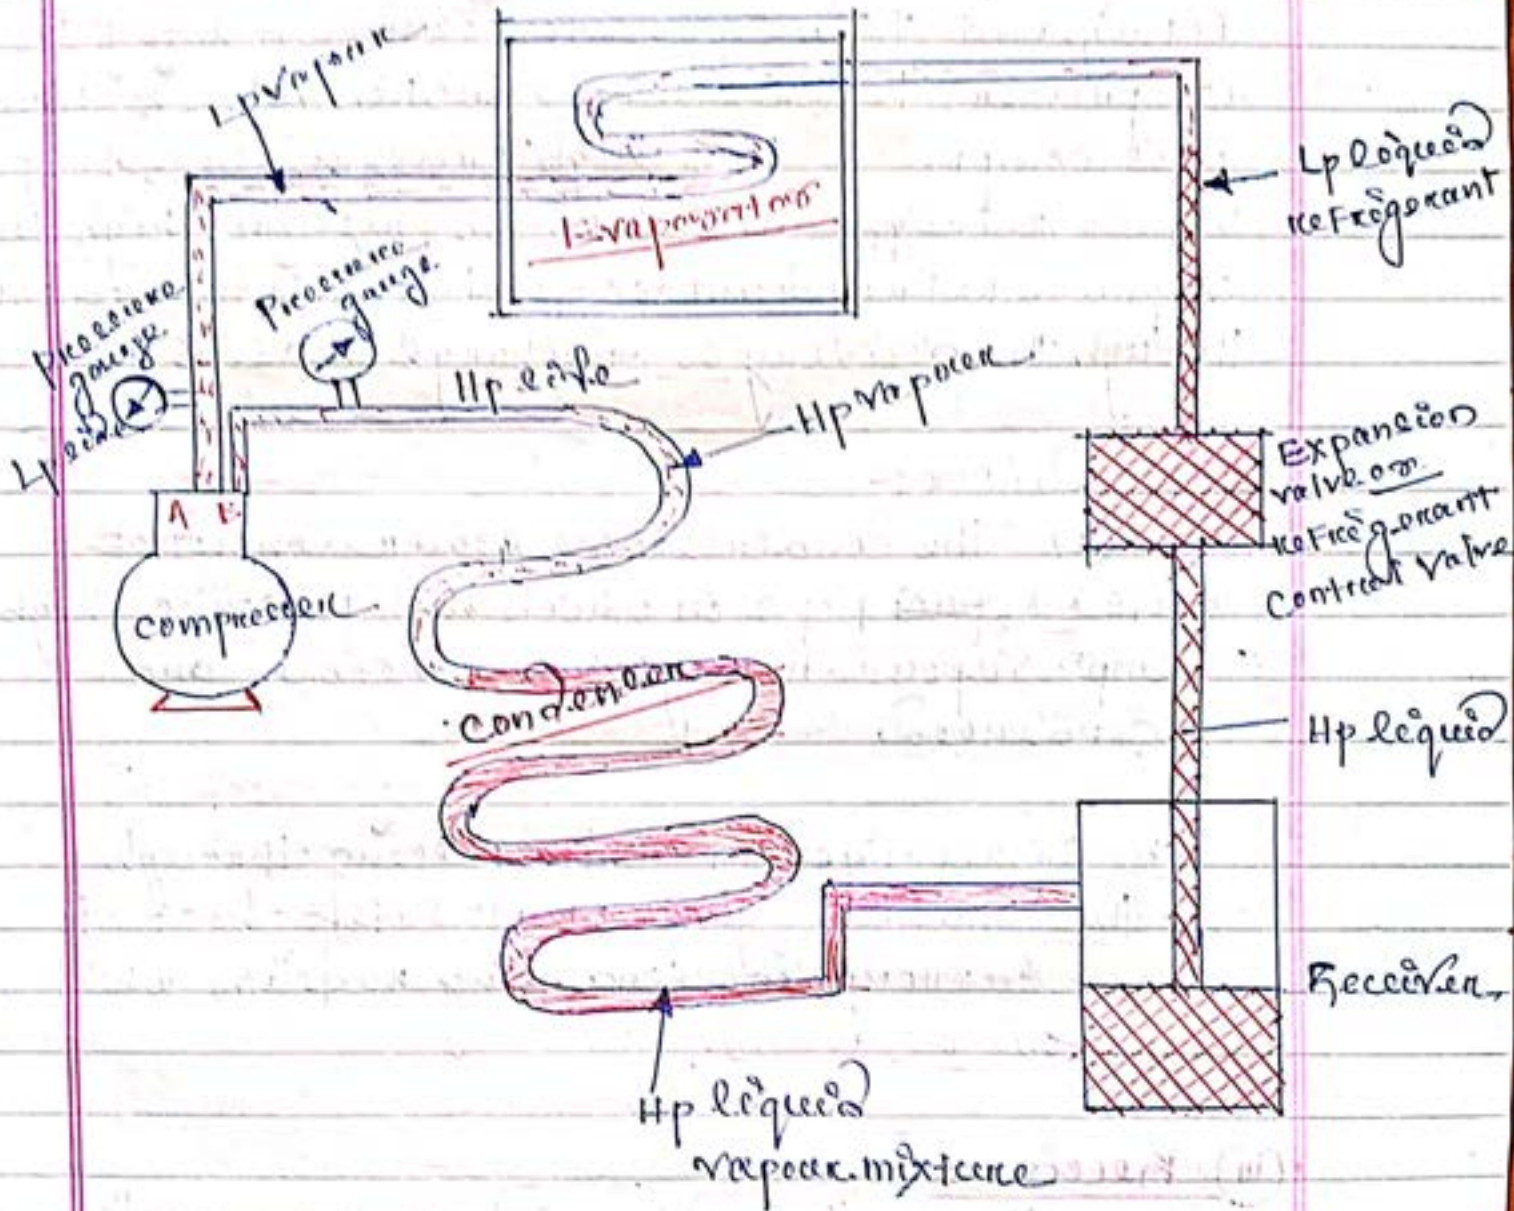 Lp vapour
Evaporator
Lp liquid
refrigerant
Pressure
gauge
Pressure
gauge.
Lp line
Hp line
Hp vapour
Expansion
valve or
refrigerant
Control valve
A
compressor
condenser
Hp liquid
Receiver
Hp liquid
vapour mixture